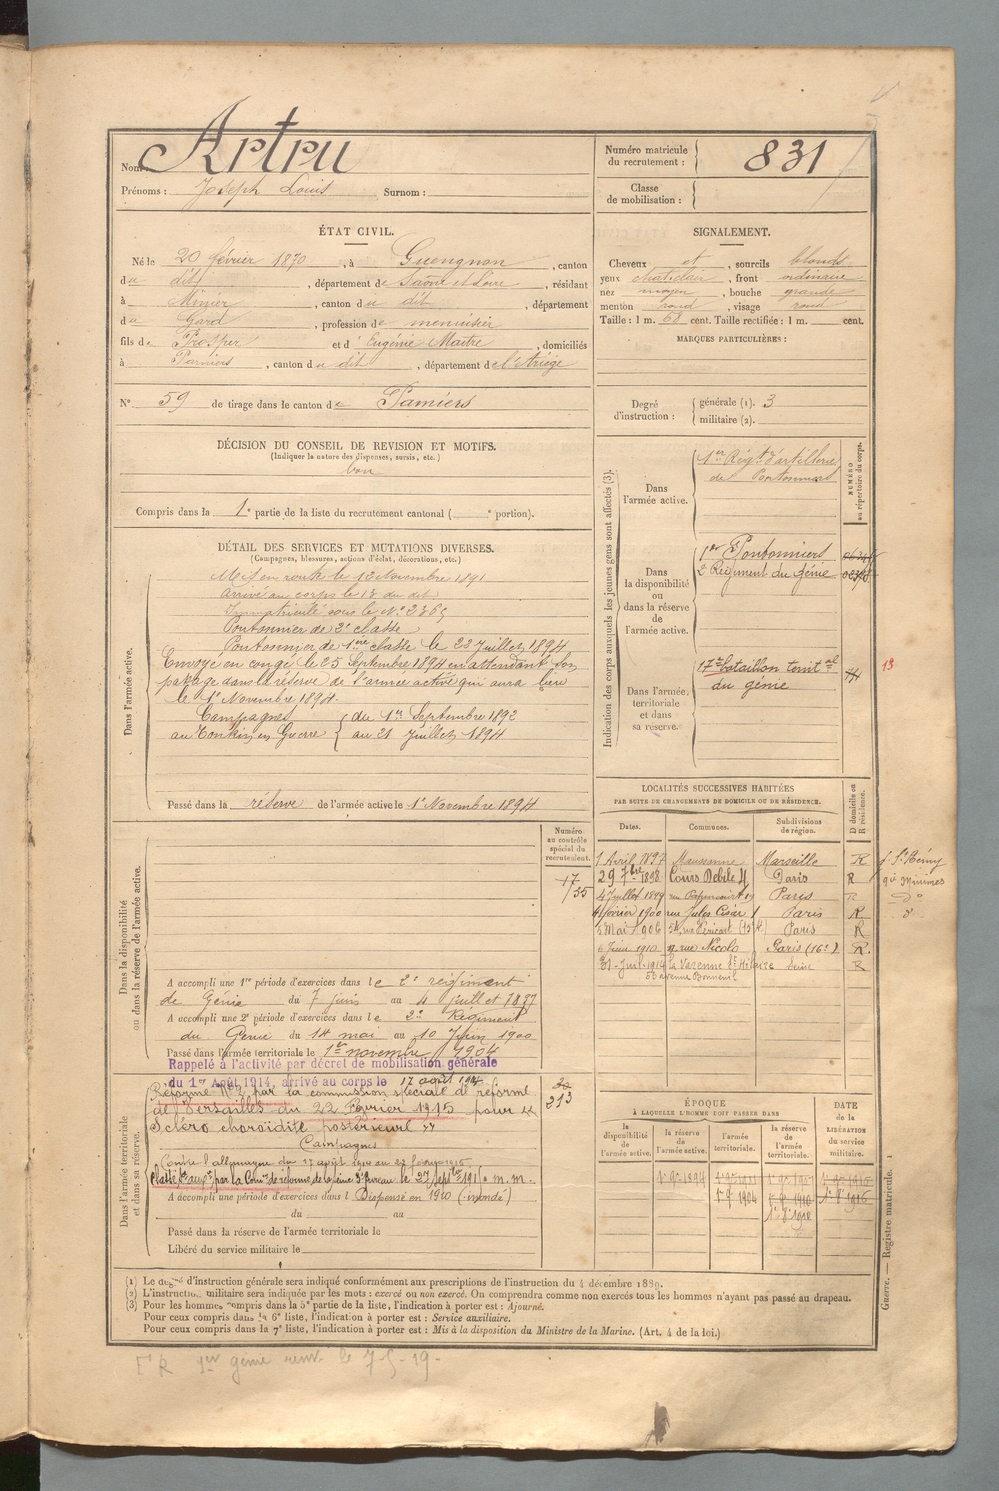 Nom Artru
Prénoms : Joseph Louis Surnom :
Numéro matricule du recrutement : 831
Classe de mobilisation :
ÉTAT CIVIL.
Né le 20 février 1870, à Guengnon, canton
du dit, département de Saône et Loire, résidant
à Mimier, canton du dit, département
du Gard, profession de menuisier
fils de Prosper et d' Eugénie Maitre, domiciliés
à Pamiers, canton du dit, département de l'Ariège
N° 59 de tirage dans le canton de Pamiers
DÉCISION DU CONSEIL DE REVISION ET MOTIFS.
(Indiquer la nature des dispenses, sursis, etc.)
bon
Compris dans la 1e partie de la liste du recrutement cantonal ( e portion).
SIGNALEMENT.
Cheveux et, sourcils blonds
yeux chat. clair, front ordinaire
nez moyen, bouche grande
menton rond, visage rond
Taille : 1 m. 68 cent. Taille rectifiée : 1 m. cent.
MARQUES PARTICULIÈRES :
Degré d'instruction : générale (1). 3
militaire (2).
DÉTAIL DES SERVICES ET MUTATIONS DIVERSES.
(Campagnes, blessures, actions d'éclat, décorations, etc.)
Dans l'armée active.
Mis en route le 12 Novembre 1891
Arrivé au corps le 13 du dit
Immatriculé sous le N° 2365
Pontonnier de 2e classe
Pontonnier de 1ère classe le 23 Juillet 1894
Envoyé en congé le 25 Septembre 1894 en attendant son
passage dans la réserve de l'armée active qui aura lieu
le 1er Novembre 1894
Campagnes du 1er Septembre 1892
au Tonkin, en Guerre au 21 Juillet 1894
Passé dans la réserve de l'armée active le 1er Novembre 1894
Indication des corps auxquels les jeunes gens sont affectés (3).
NUMÉRO au répertoire du corps.
Dans l'armée active.
1er Régt d'artillerie
de Pontonniers
Dans la disponibilité ou dans la réserve de l'armée active.
1er Pontonniers
2e Régiment du génie
Dans l'armée territoriale et dans sa réserve.
17e bataillon territal
du génie
13
LOCALITÉS SUCCESSIVES HABITÉES
PAR SUITE DE CHANGEMENTS DE DOMICILE OU DE RÉSIDENCE.
Dates. Communes. Subdivisions de région. D domicile ou R résidence.
1 Avril 1897 Maussanne Marseille R St Rémy
29 7bre 1898 Cours Debile 4 Paris R
4 Juillet 1899 Paris R
4 février 1900 rue Jules César 1 Paris R
5 Mai 1906 54, rue Héricart (15e) Paris R
6 Juin 1910 9, rue Nicolo Paris (16e) R.
31 Juil. 1914 la Varenne St Hilaire Seine R
53 avenue Bonneuil
Dans la disponibilité ou dans la réserve de l'armée active.
Numéro au contrôle spécial du recrutement.
17
55
A accompli une 1re période d'exercices dans le 2e régiment
de Génie du 7 juin au 4 juillet 1897
A accompli une 2e période d'exercices dans le 2e Régiment
du Génie du 14 mai au 10 Juin 1900
Passé dans l'armée territoriale le 1er novembre 1904
Rappelé à l'activité par décret de mobilisation générale
du 1er Août 1914, arrivé au corps le 17 août 1914
Dans l'armée territoriale et dans sa réserve.
Réformé N°2 par la commission spéciale de réforme
de Versailles du 22 Février 1915 pour
Scléro choroïdite postérieure
213
Campagnes
Contre l'allemagne du 17 août 1914 au 22 février 1915
A accompli une période d'exercices dans l Dispensé en 1910 (inondé)
du au
Passé dans la réserve de l'armée territoriale le
Libéré du service militaire le
ÉPOQUE
À LAQUELLE L'HOMME DOIT PASSER DANS
la disponibilité de l'armée active.
la réserve de l'armée active.
l'armée territoriale.
la réserve de l'armée territoriale.
DATE de la LIBÉRATION du service militaire.
1er 9bre 1894
1er 9bre 1904
1er 9bre 1910
Guerre. — Registre matricule. 1
(1) Le degré d'instruction générale sera indiqué conformément aux prescriptions de l'instruction du 4 décembre 1889.
(2) L'instruction militaire sera indiquée par les mots : exercé ou non exercé. On comprendra comme non exercés tous les hommes n'ayant pas passé au drapeau.
(3) Pour les hommes compris dans la 5e partie de la liste, l'indication à porter est : Ajourné.
Pour ceux compris dans la 6e liste, l'indication à porter est : Service auxiliaire.
Pour ceux compris dans la 7e liste, l'indication à porter est : Mis à la disposition du Ministre de la Marine. (Art. 4 de la loi.)
1er génie le 7-5-19-